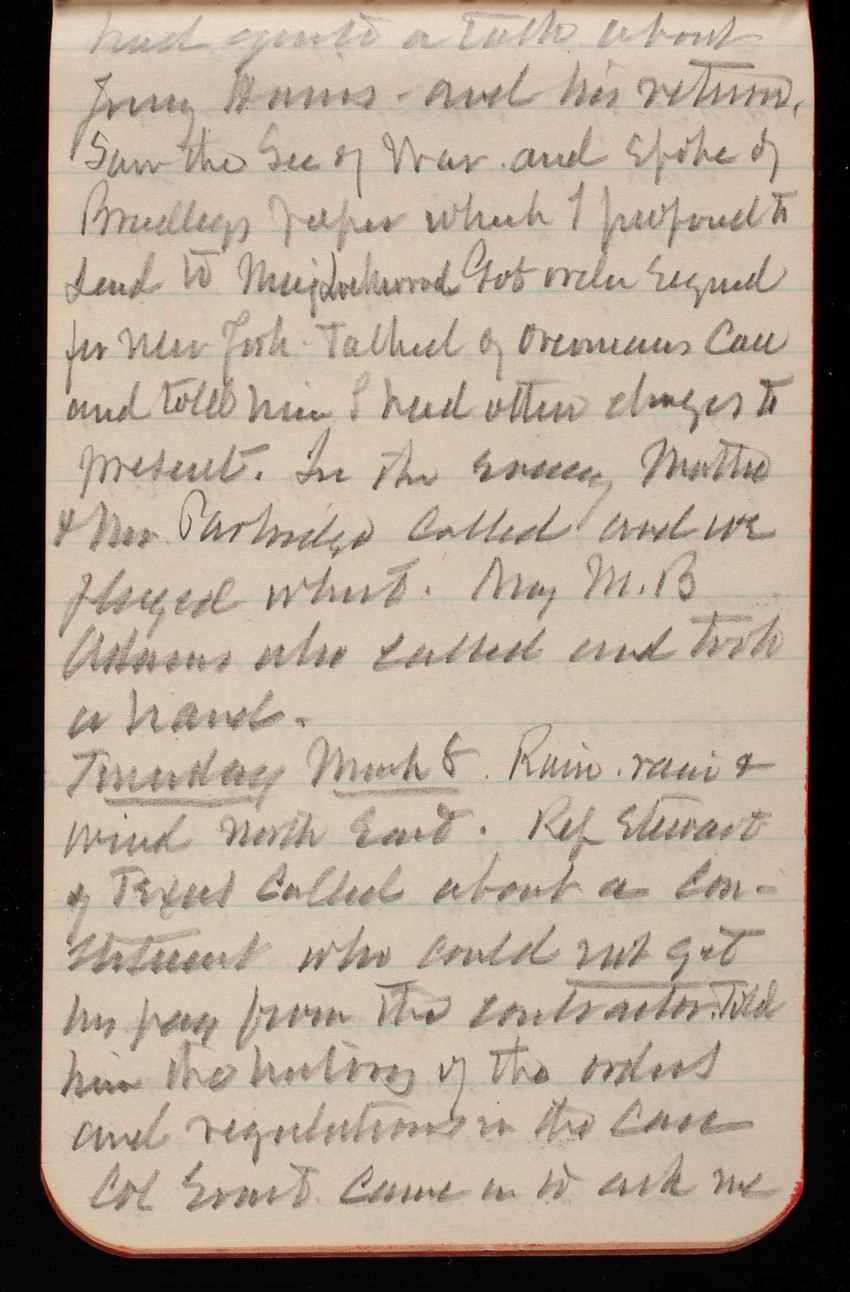 had quite a talk about
Jerry Harris - and his return.
Saw the Sec of War and spoke of
paper which I proposed to
send to Maj Lockwood Got order signed
for New York Talked of Overmans Case
and told him I had other charges to
present. In the evening Mattie
& Mr Partridge called and we
played whist. May M. B
Adams also called and took
a hand.
Tuesday March 8. Rain, rain &
wind North East. Rep Stewart
of Texas called about a con-
stituent who could not get
his pay from the contractor. Told
him the history of the orders
and regulations in the case
Col Ernst came in to ask me